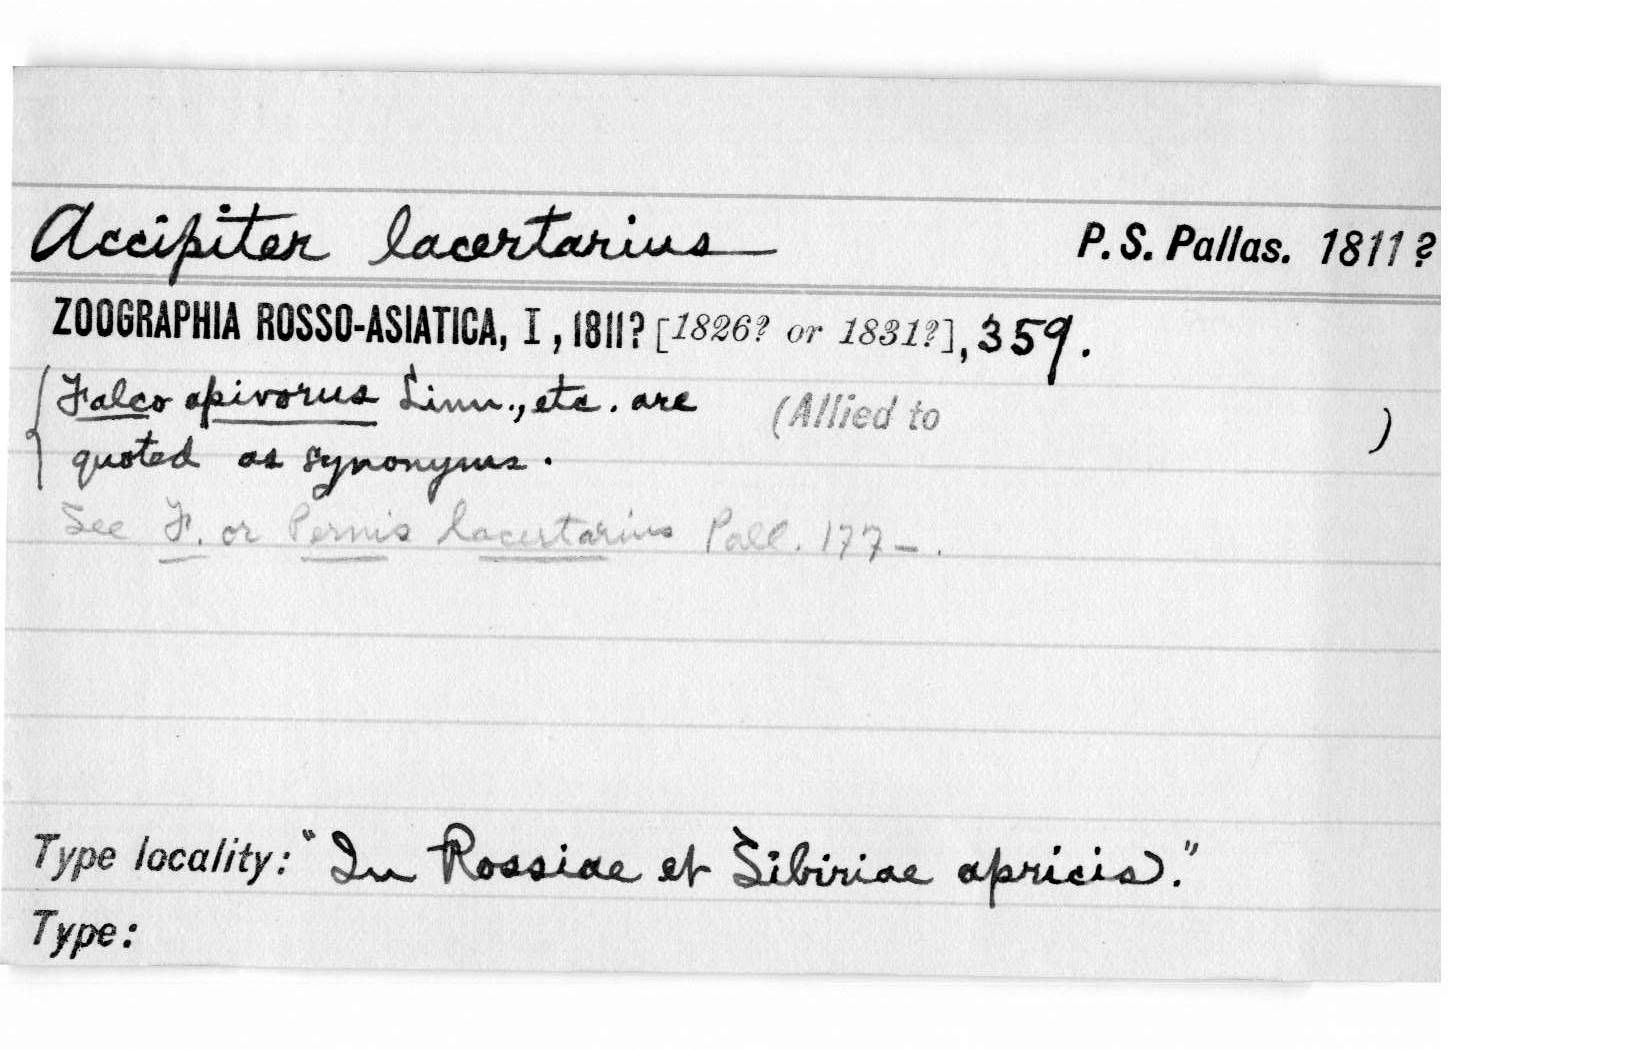 Accipiter lacertarius P. S. Pallas. 1811?
ZOOGRAPHIA ROSSO-ASIATICA, I, 1811? [1826? or 1831?], 359.
{ Falco apivorus Linn., etc. are (Allied to )
quoted as synonyms.
See F. or Pernis lacertarius Pall. 177–.
Type locality: "In Rossiae et Sibiriae apricis."
Type: